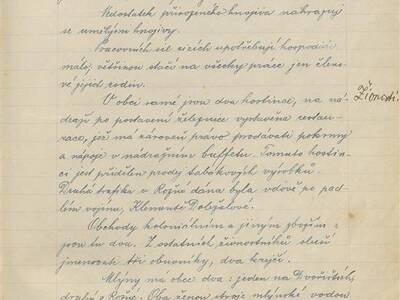 Nedostatek přirozeného hnojiva nahrazují
se umělými hnojivy.
Pracovních sil cizích upotřebují hospodáři
málo, většinou stačí na všecky práce jen členo-
vé jejich rodin.
Živnosti.
V obci samé jsou dva hostince, na ná-
draží po postavení železnice vystavěna restau-
race, jež má zároveň právo prodávati pokrmy
a nápoje v nádražním buffetu. Tomuto hostin-
ci jest přidělen prodej tabákových výrobků.
Druhá trafika v Rožné dána byla vdově po pad-
lém vojínu, Klementě Doležalové.
Obchody koloniálním a jiným zbožím
jsou tu dva. Z ostatních živnostníků sluší
jmenovati tři obuvníky, dva krejčí.
Mlýny má obec dva: jeden na Dvořištích,
druhý v Rožné. Oba ženou stroje mlýnské vodou